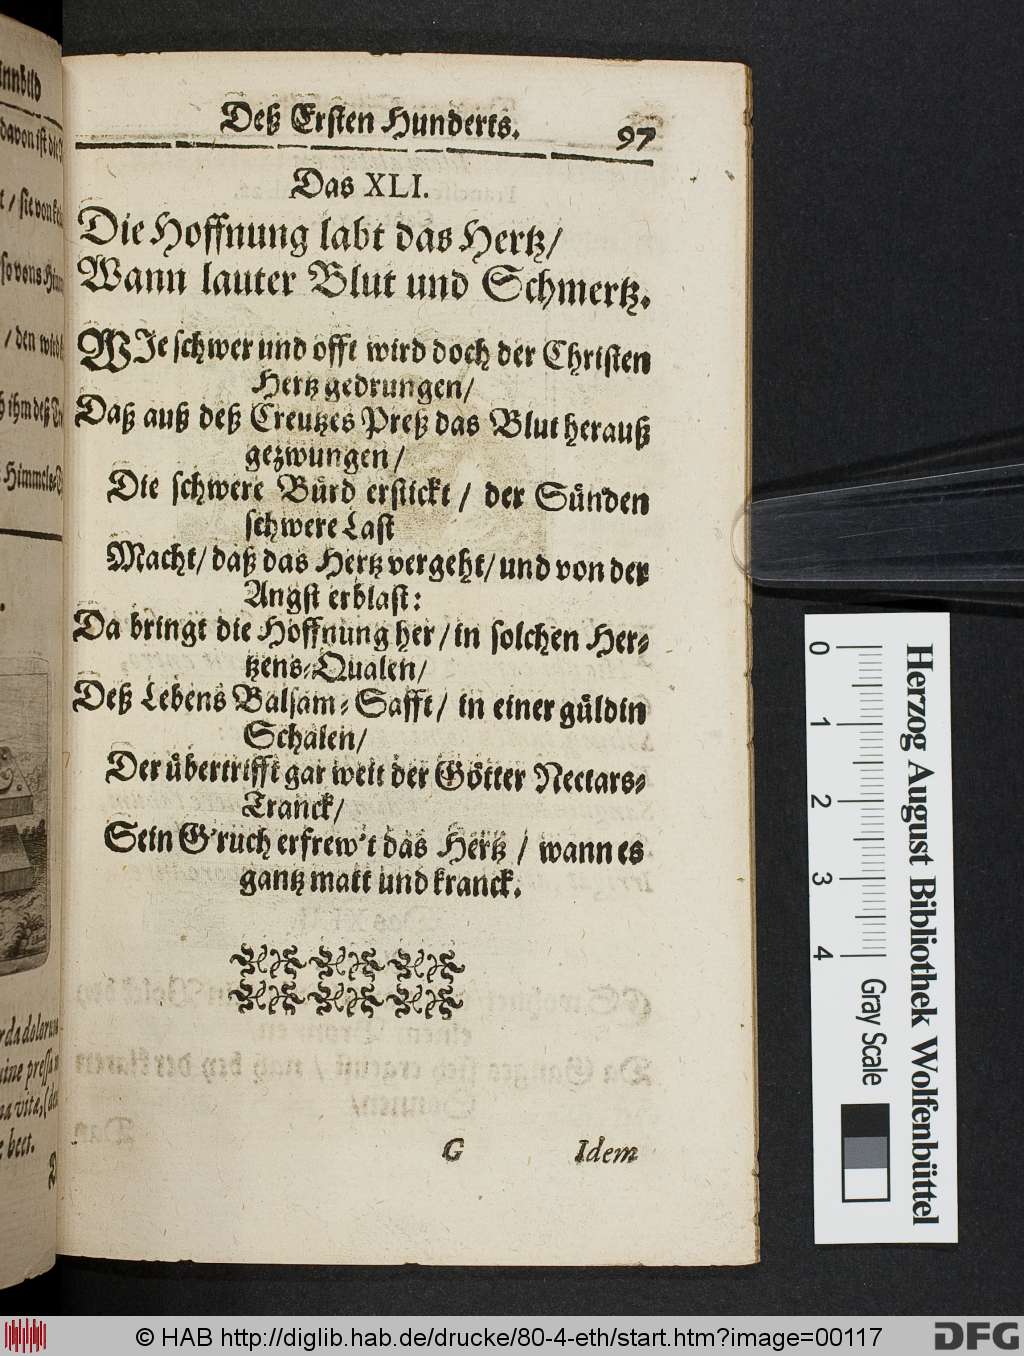 Deß Ersten Hunderts. 97
Das XLI.
Die Hoffnung labt das Hertz/
Wann lauter Blut und Schmertz.
WIe schwer und offt wird doch der Christen
Hertz gedrungen/
Daß auß deß Creutzes Preß das Blut herauß
gezwungen/
Die schwere Bürd erstickt / der Sünden
schwere Last
Macht/ daß das Hertz vergeht/ und von der
Angst erblast:
Da bringt die Hoffnung her/ in solchen Her-
tzens-Qualen/
Deß Lebens Balsam-Safft/ in einer güldin
Schalen/
Der übertrifft gar weit der Götter Nectars-
Tranck/
Sein G'ruch erfrew't das Hertz / wann es
gantz matt und kranck.
G Idem
innbild
davon ist die
/ sie von
/ den wird
ihm deß
Himmels-
vita,
beet.
0 1 2 3 4
Gray Scale
Herzog August Bibliothek Wolfenbüttel
© HAB http://diglib.hab.de/drucke/80-4-eth/start.htm?image=00117
DFG